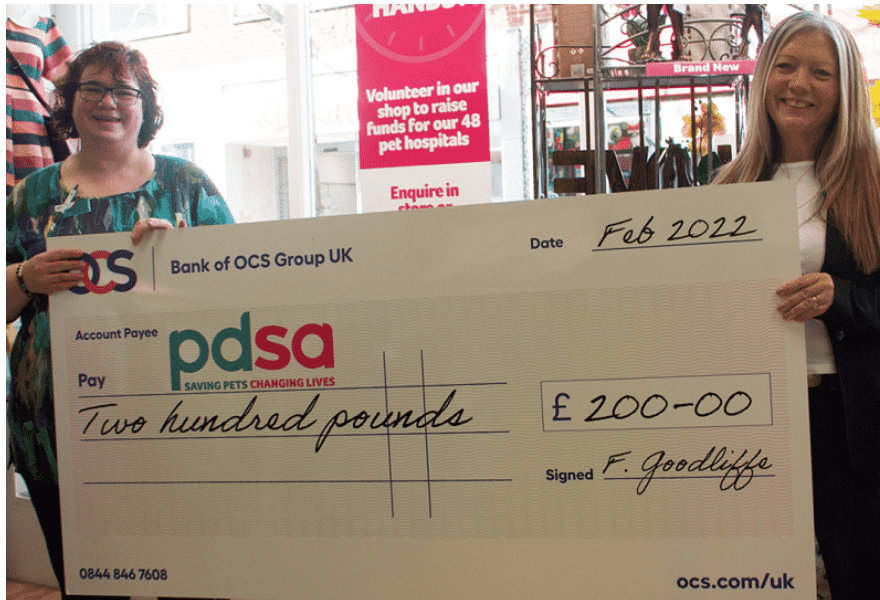 HANDS?
Volunteer in our
shop to raise
funds for our 48
pet hospitals
Enquire in
store or
Brand New
OCS
Bank of OCS Group UK
Date Feb 2022
Account Payee
pdsa
SAVING PETS CHANGING LIVES
Pay
Two hundred pounds
£ 200-00
Signed F. Goodliffe
0844 846 7608
ocs.com/uk